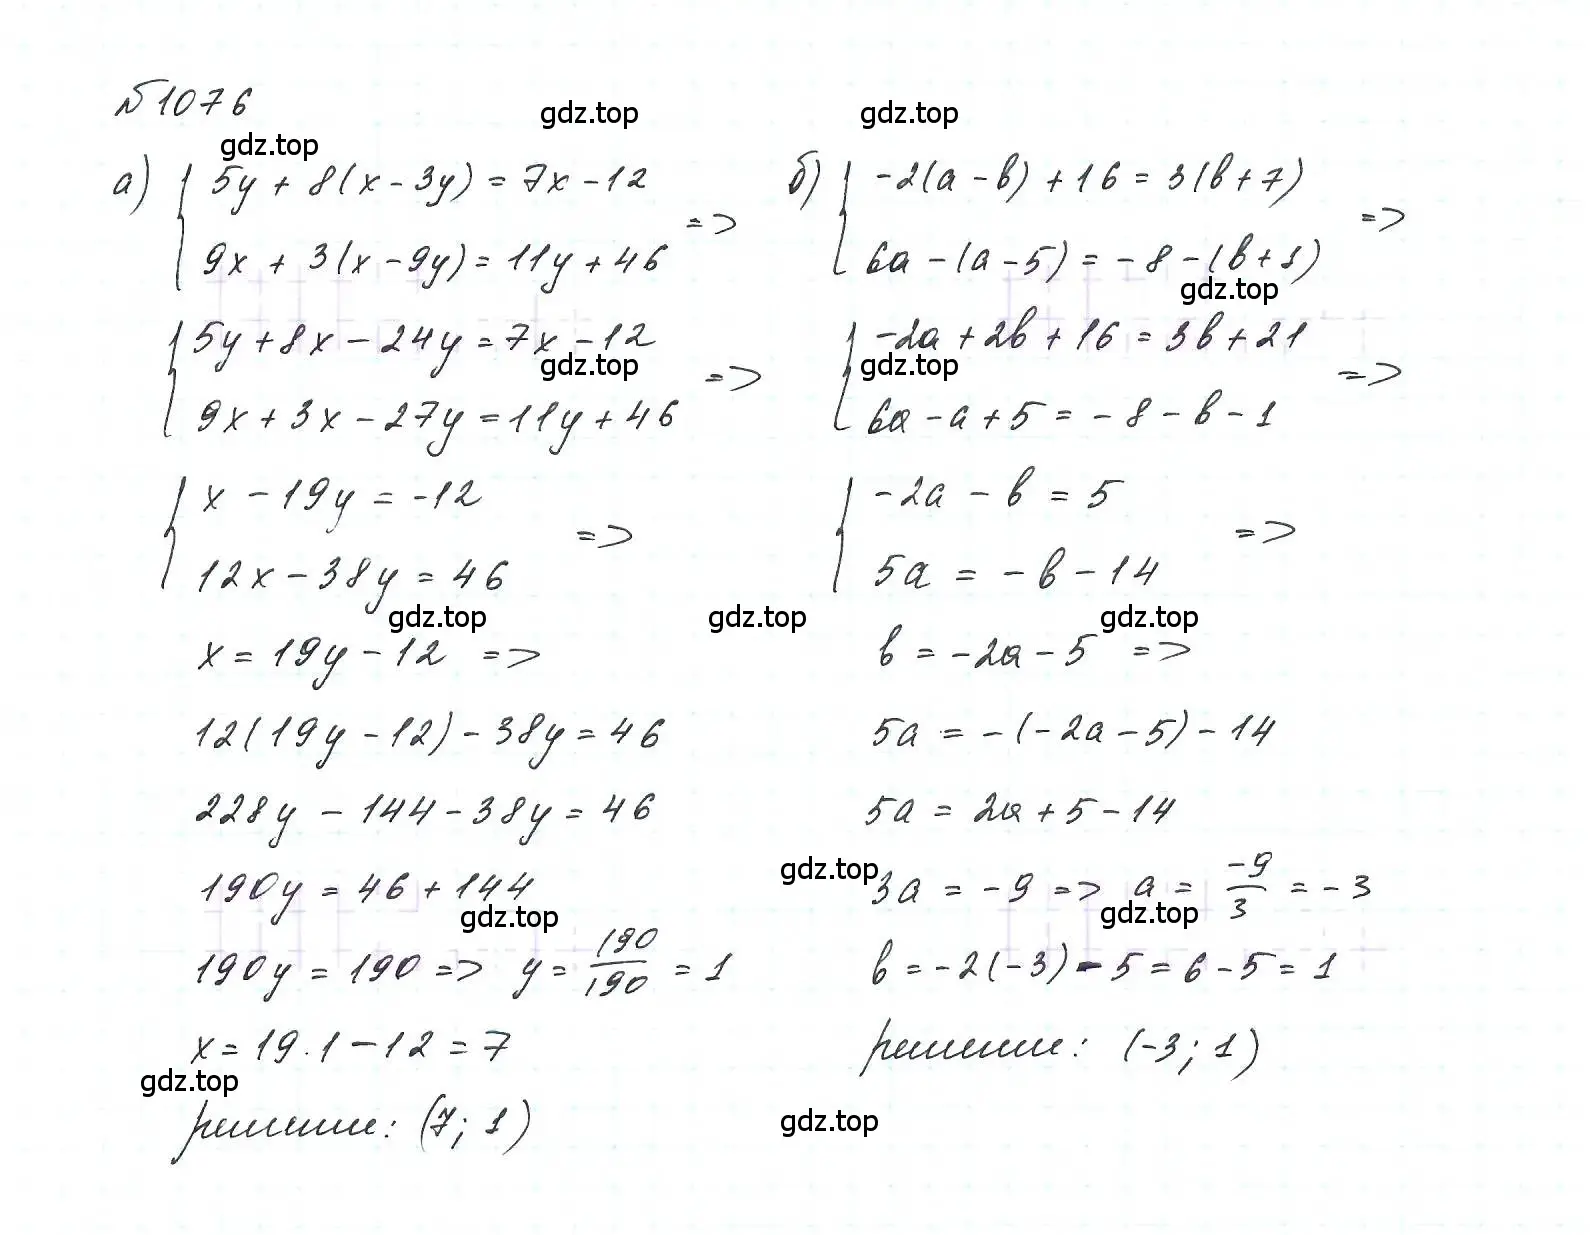 №1076
gdz.top gdz.top
gdz.top
а) { 5y + 8(x - 3y) = 7x - 12
9x + 3(x - 9y) = 11y + 46 =>
{ 5y + 8x - 24y = 7x - 12
gdz.top
9x + 3x - 27y = 11y + 46 =>
{ x - 19y = -12
12x - 38y = 46 =>
gdz.top gdz.top
x = 19y - 12 =>
12(19y - 12) - 38y = 46
228y - 144 - 38y = 46
190y = 46 + 144
gdz.top
190y = 190 => y = 190/190 = 1
x = 19 · 1 - 12 = 7
gdz.top
решение: (7; 1)
б) { -2(a - b) + 16 = 3(b + 7)
6a - (a - 5) = -8 - (b + 1) =>
gdz.top
{ -2a + 2b + 16 = 3b + 21
gdz.top
6a - a + 5 = -8 - b - 1 =>
{ -2a - b = 5
5a = -b - 14 =>
gdz.top
b = -2a - 5 =>
5a = -(-2a - 5) - 14
5a = 2a + 5 - 14
gdz.top
3a = -9 => a = -9/3 = -3
gdz.top
b = -2(-3) - 5 = 6 - 5 = 1
решение: (-3; 1)
gdz.top